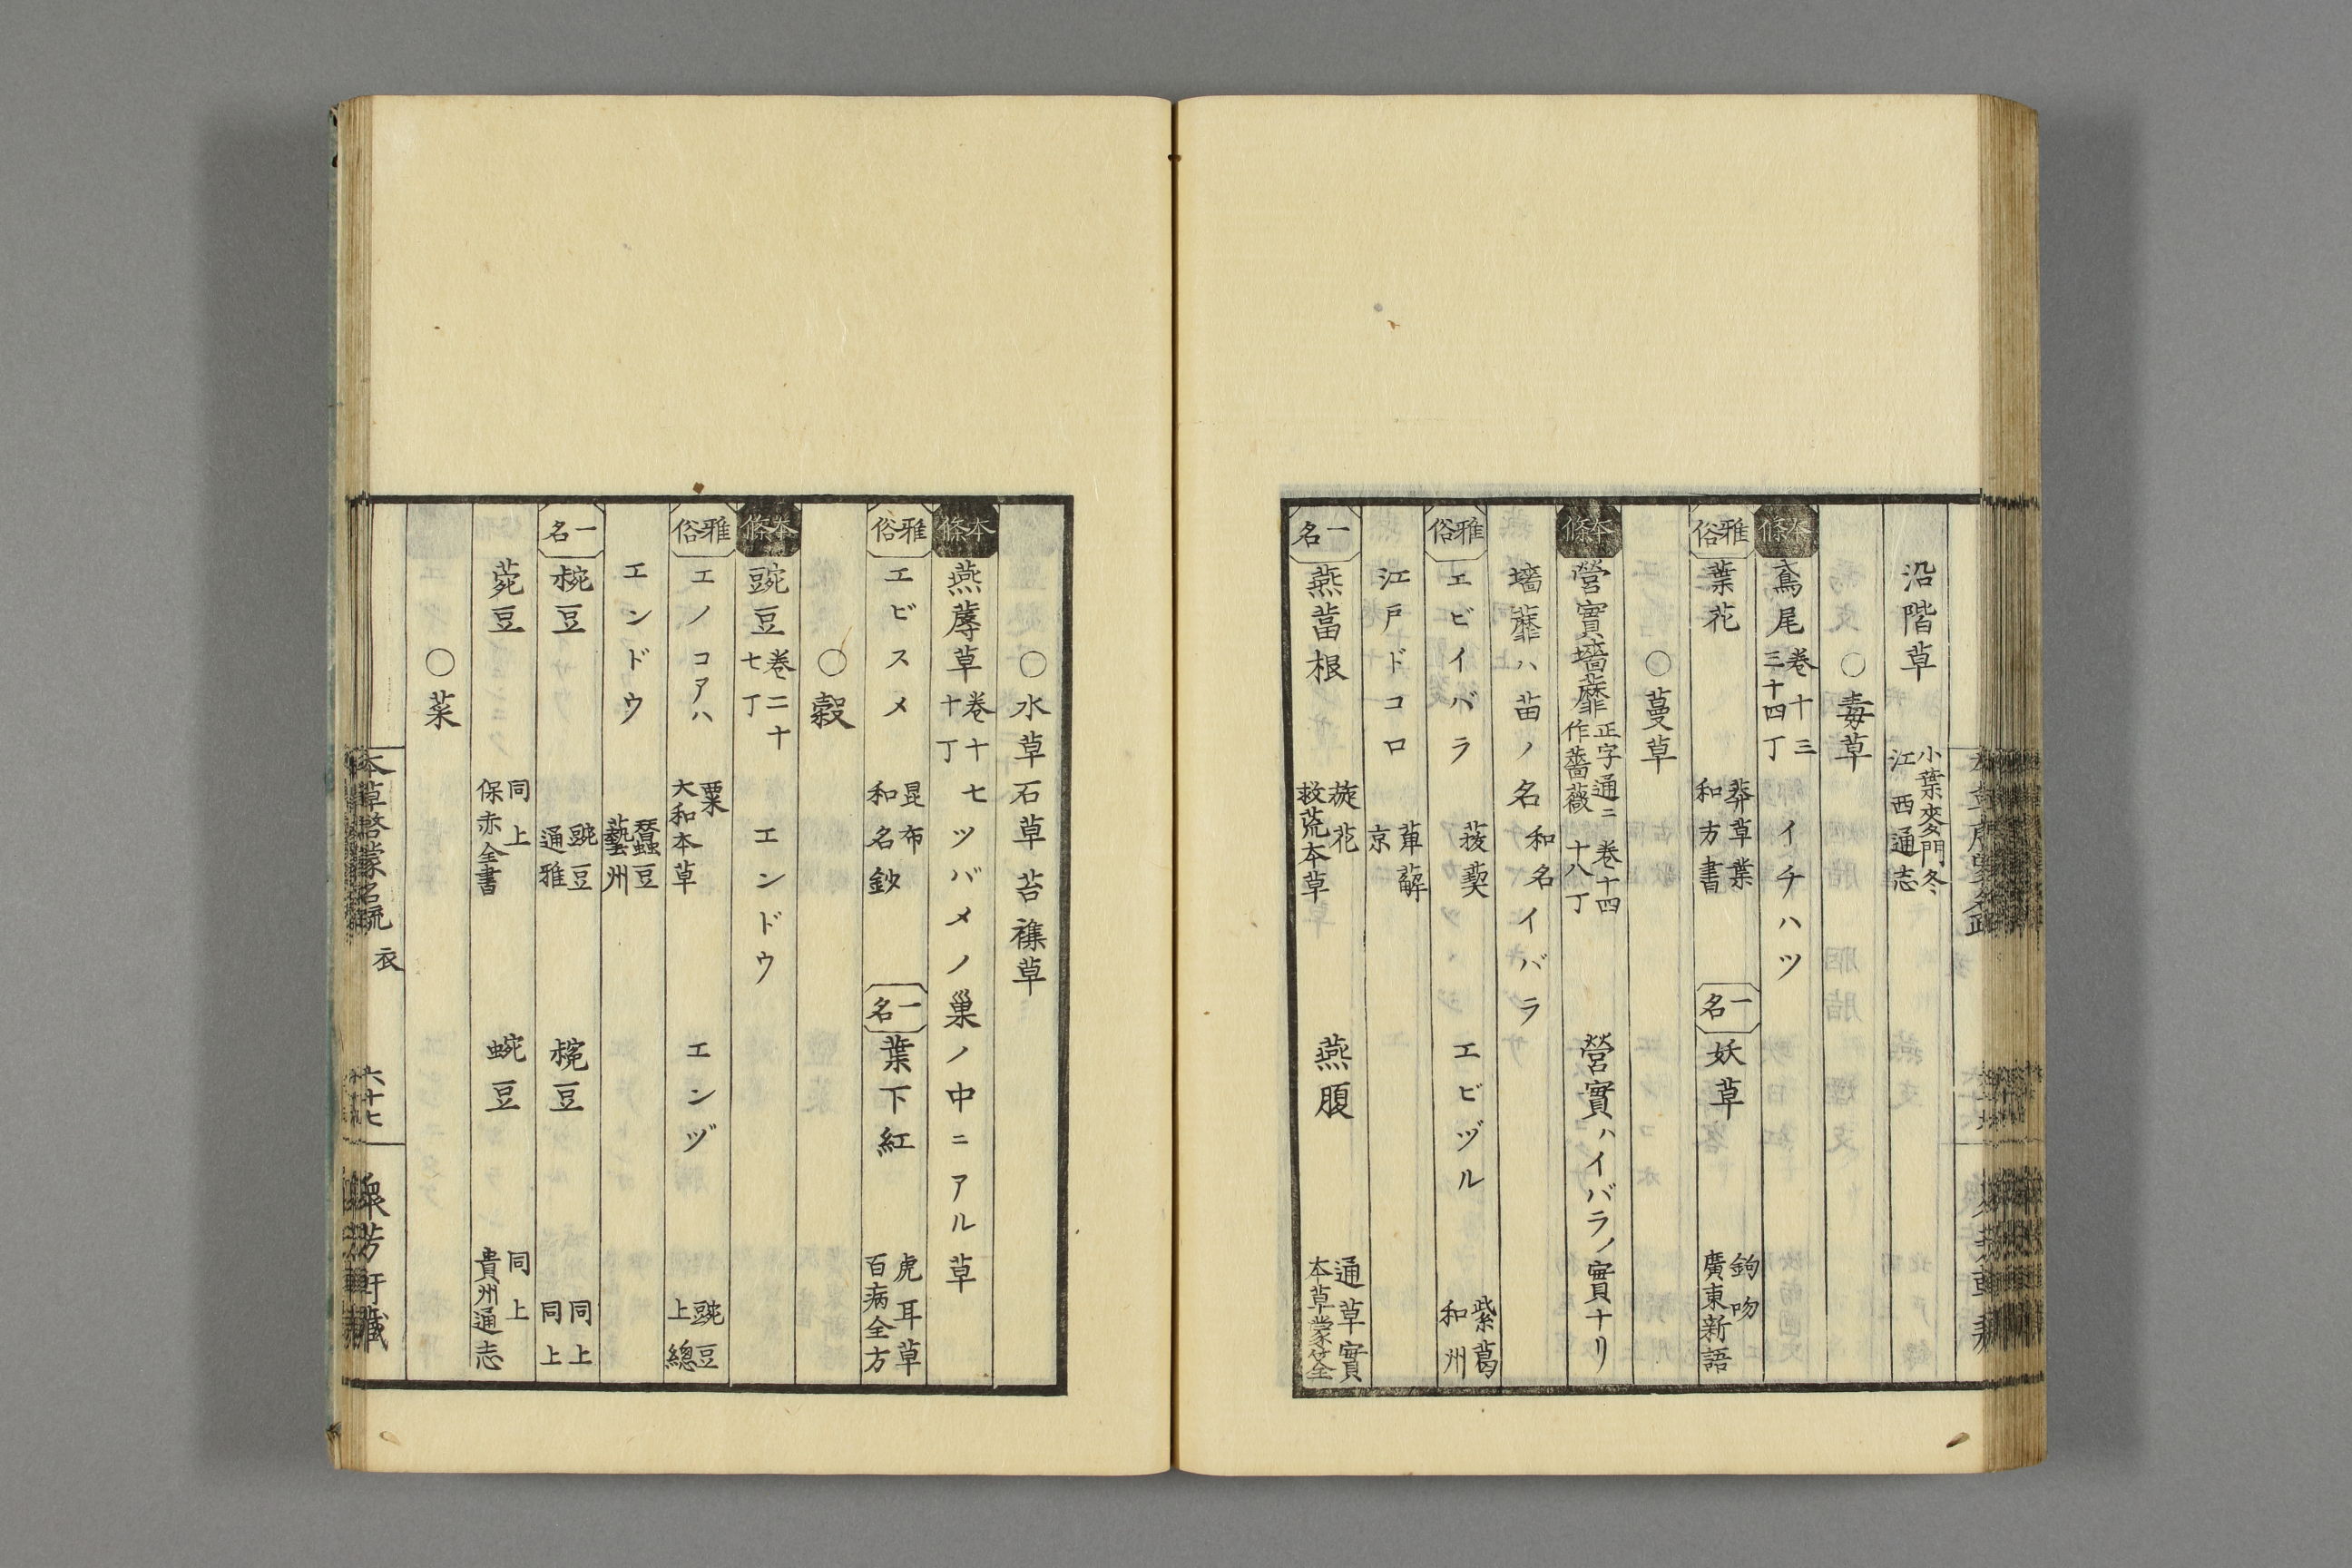 沿階草 小葉麥門冬 江西通志
○毒草
本條 鳶尾 卷十三 三十四丁 イチハツ
雅俗 葉花 莽草葉 和方書 一名 妖草 鉤吻 廣東新語
○蔓草
本條 營實墻蘼 正字通ニ作薔薇 卷十四 十八丁 營實ハイバラノ實ナリ
墻蘼ハ苗ノ名 和名イバラ
雅俗 エビイバラ 菝葜 エビヅル 紫葛 和州
江戸ドコロ 萆薢 京
一名 燕葍根 旋花 救荒本草 燕腹 通草實 本草蒙筌
○水草石草苔襍草
本條 燕蓐草 卷十七 十丁 ツバメノ巢ノ中ニアル草
雅俗 エビスメ 昆布 和名鈔 一名 葉下紅 虎耳草 百病全方
○穀
本條 豌豆 卷二十 七丁 エンドウ
雅俗 エノコアハ 粟 大和本草 エンヅ 豌豆 上總
エンドウ 蠶豆 藝州
一名 椀豆 豌豆 通雅 㮘豆 同上 同上
菀豆 同上 保赤全書 蜿豆 同上 貴州通志
○菜
本草啓蒙名疏 衣 六十七 衆芳軒藏